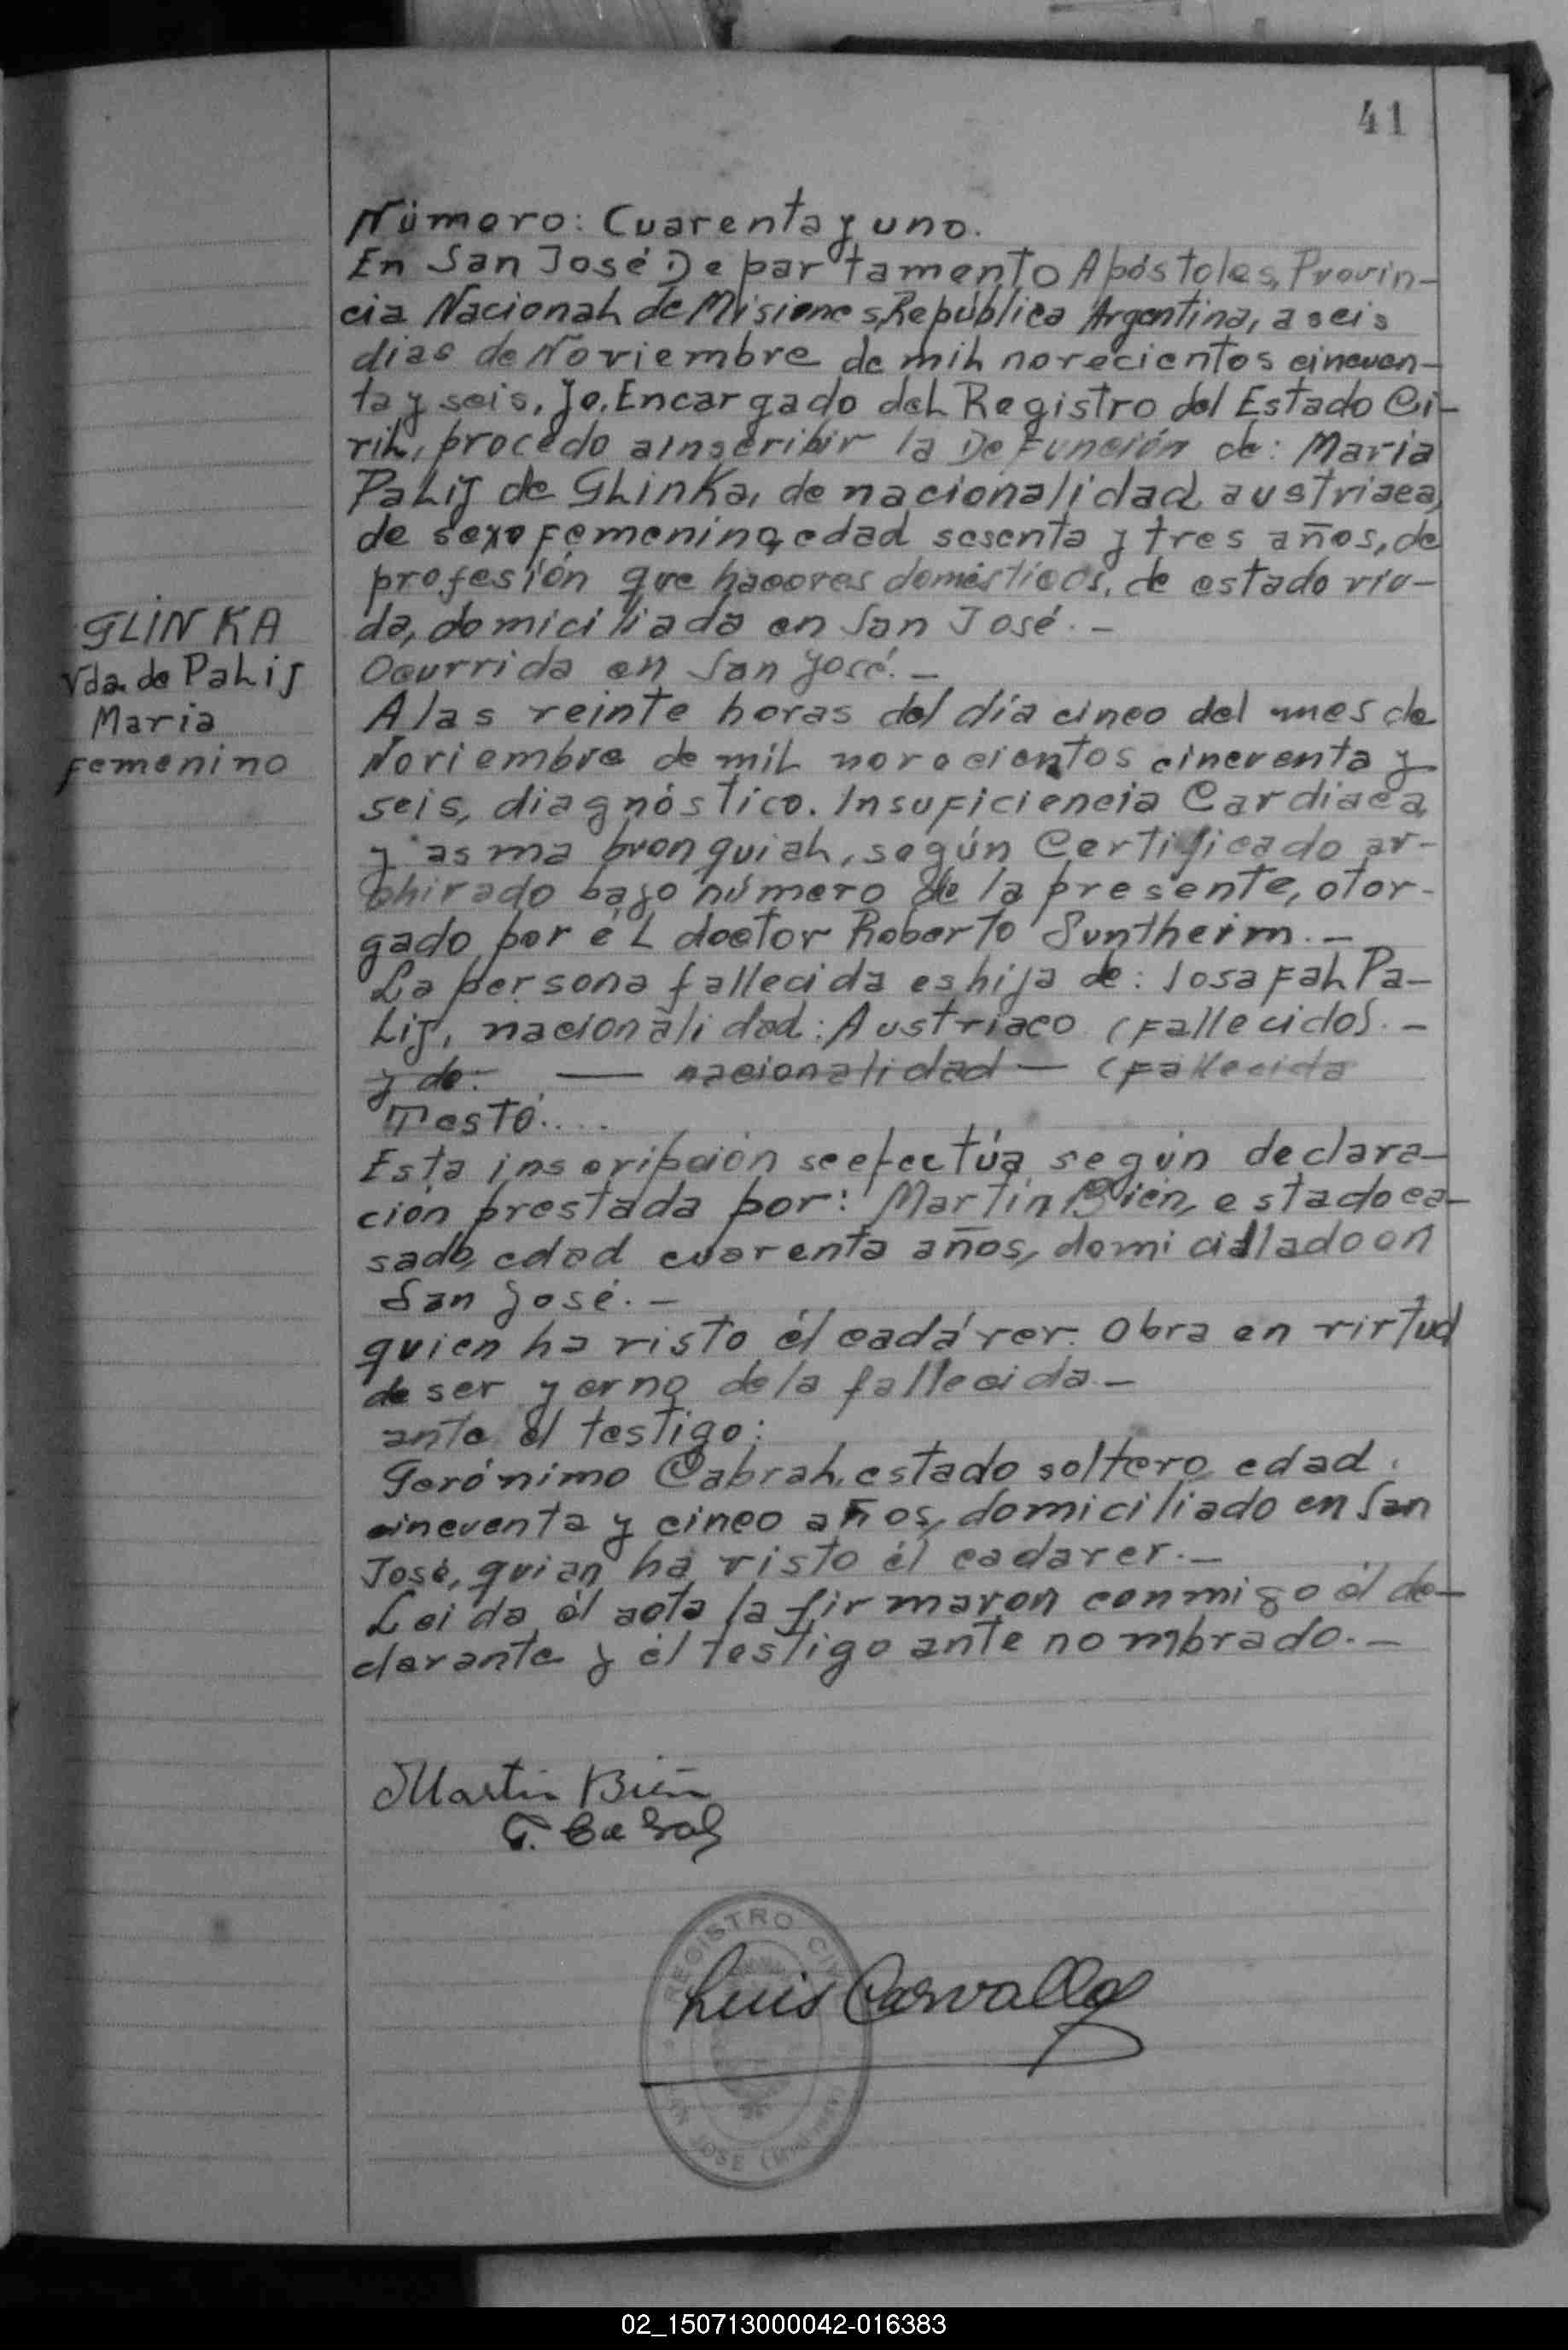 41
Número: Cuarenta y uno.
En San José Departamento Apóstoles, Provin-
cia Nacional de Misiones, República Argentina, a seis
dias de Noviembre de mil novecientos cincuen-
ta y seis, yo, Encargado del Registro del Estado Ci-
vil, procedo a Inscribir la Defunción de: Maria
Palij de Glinka, de nacionalidad austriaca,
de sexo femenino, edad sesenta y tres años, de
profesión que haceres domésticos, de estado viu-
da, domiciliada en San José.-
Ocurrida en San José.-
A las veinte horas del día cinco del mes de
Noviembre de mil novecientos cincuenta y
seis, diagnóstico. Insuficiencia Cardiaca
y asma bronquial, según Certificado ar-
chivado bajo número de la presente, otor-
gado por él doctor Roberto Suntheim.-
La persona fallecida es hija de: Josafah Pa-
lij, nacionalidad: Austriaco (Fallecido).-
y de: — nacionalidad — (Fallecida
Testó.....
Esta inscripción se efectúa según declara-
ción prestada por: Martín Bién, estado ca-
sado, edad cuarenta años, domiciliado en
San José.-
quien ha visto él cadáver. Obra en virtud
de ser yerno de la fallecida.-
ante el testigo:
Gerónimo Cabral, estado soltero, edad
cincuenta y cinco años, domiciliado en San
José, quien ha visto él cadaver.-
Leida él acta la firmaron conmigo él de-
clarante y él testigo ante nombrado.-
GLINKA
Vda. de Palij
Maria
femenino
Martin Bien
G. Cabral
REGISTRO CIVIL
Luis Carvallo
SAN JOSE (MISIONES)
02_150713000042-016383